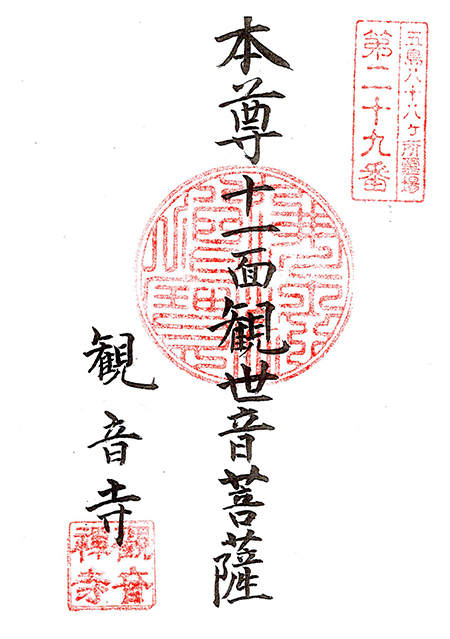 五島八十八ヶ所霊場
第二十九番
本尊十一面観世音菩薩
観音寺
観音禅寺